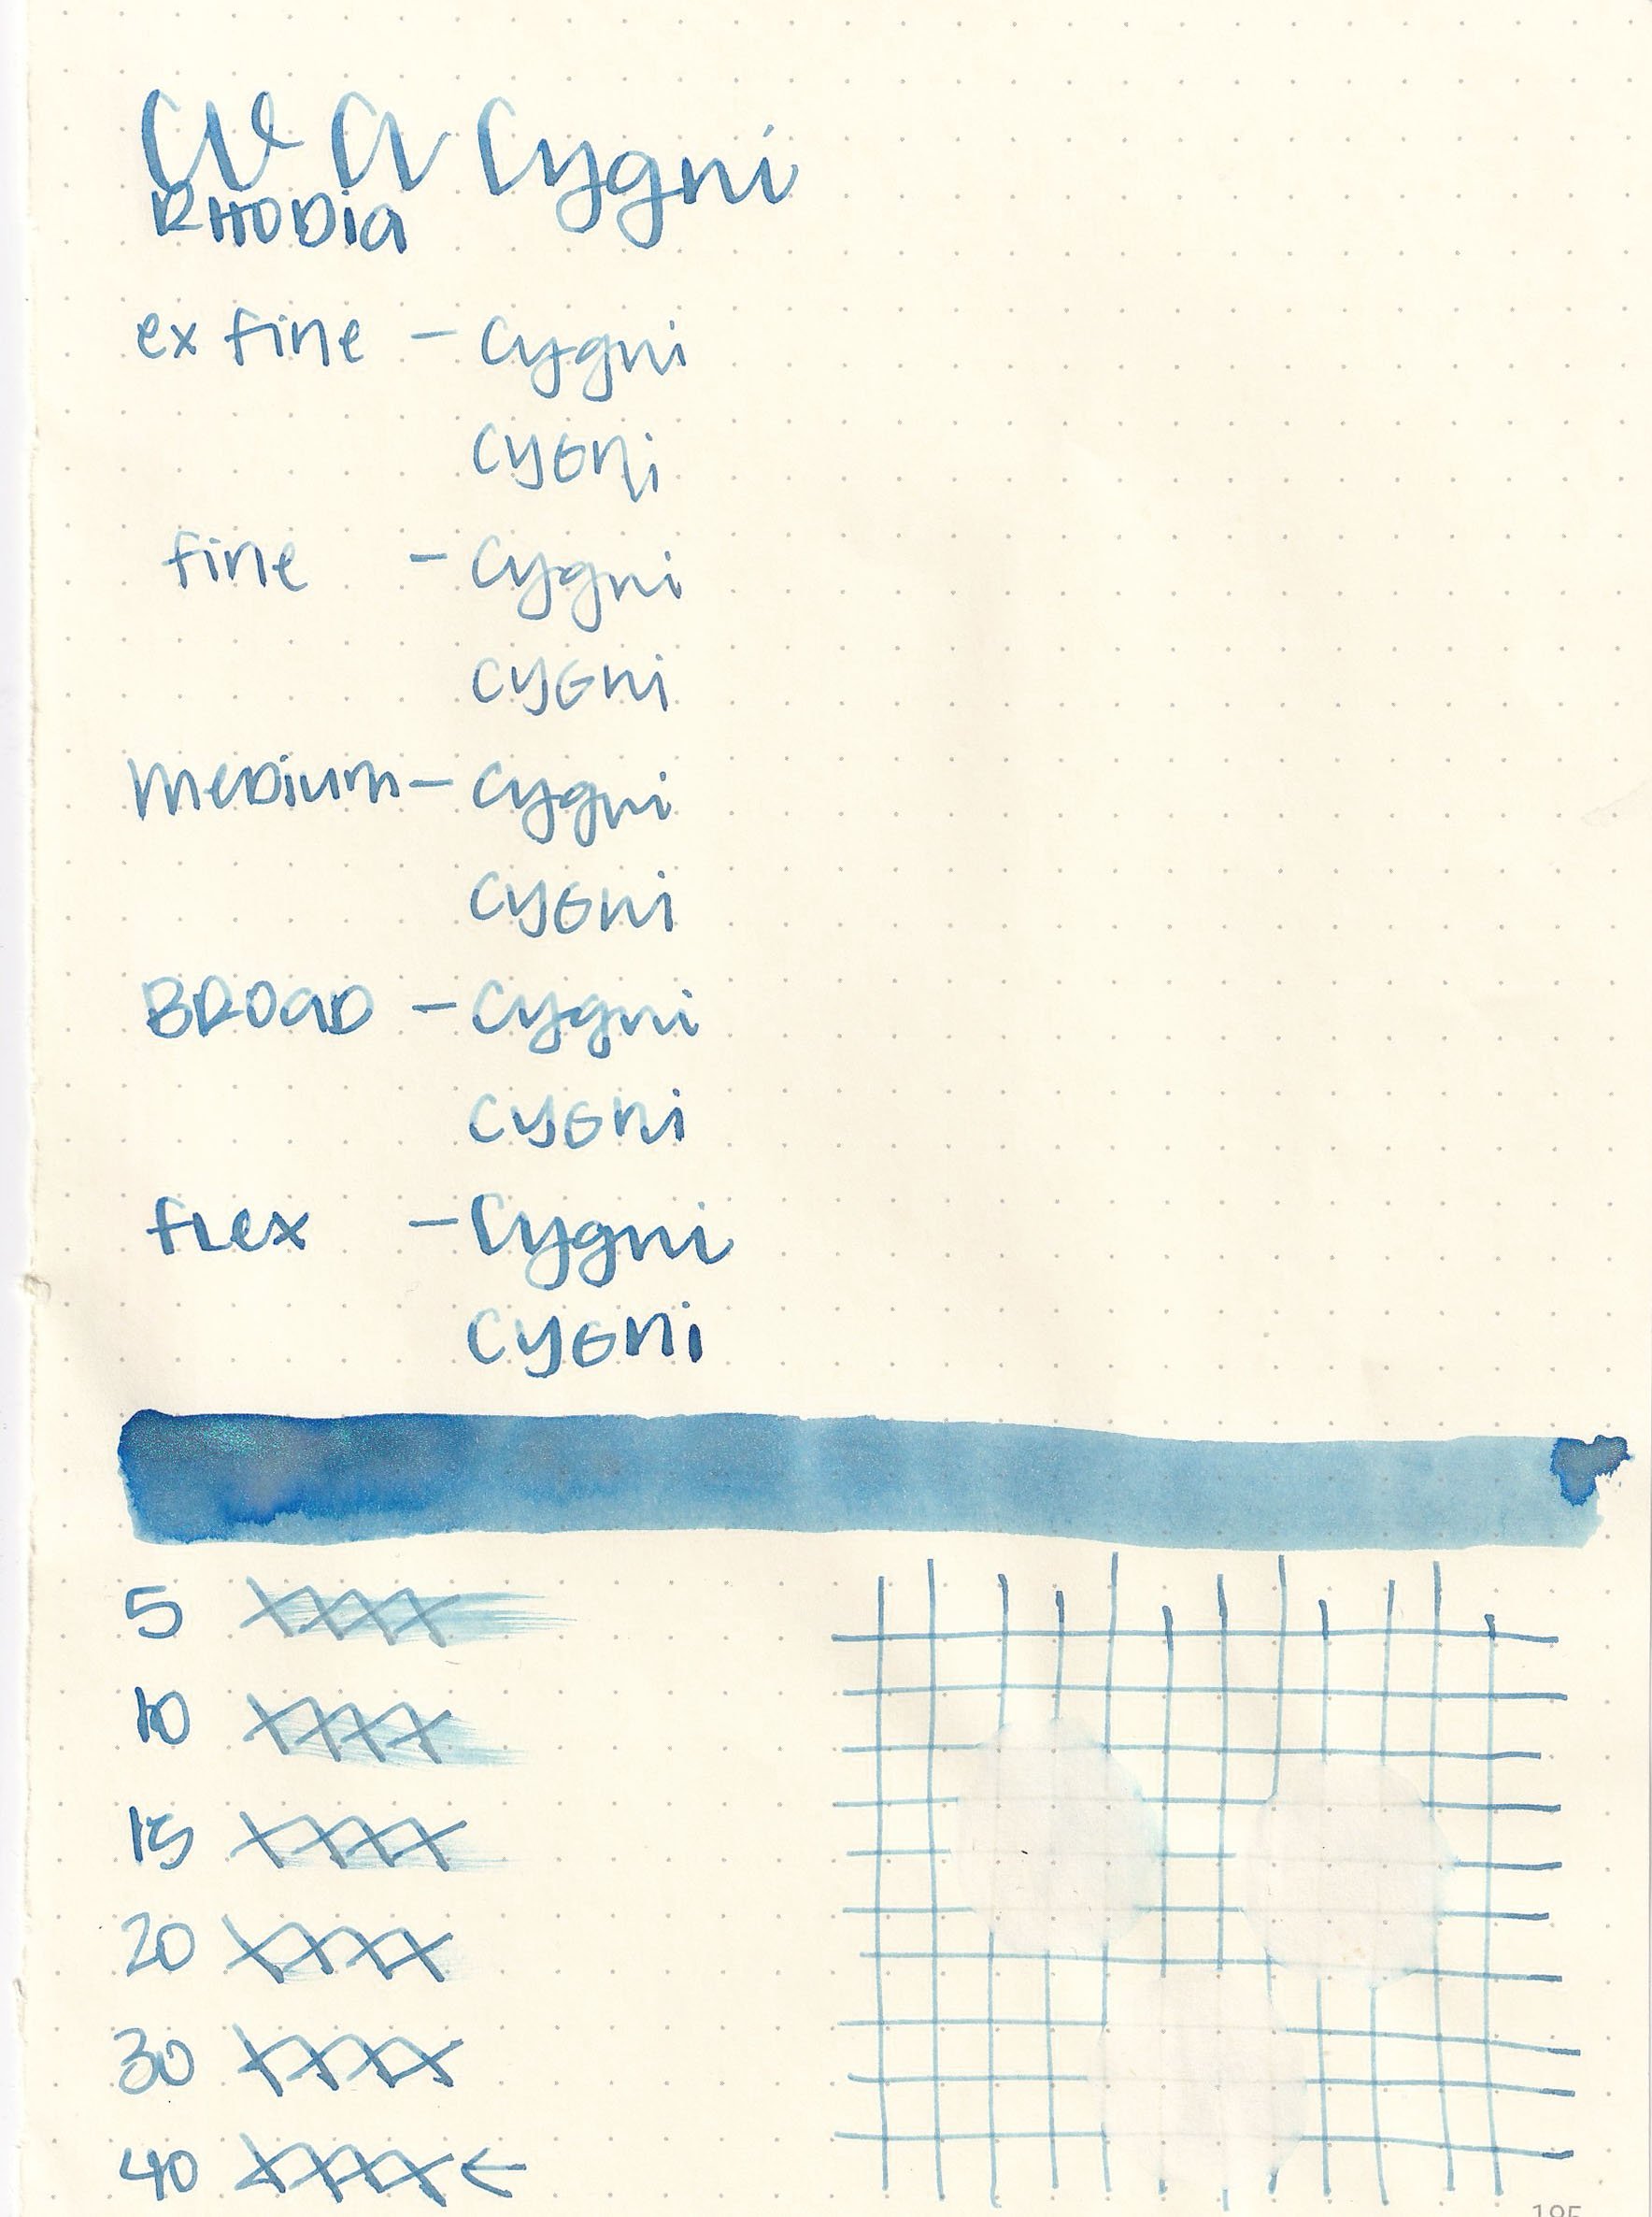 CV α Cygni
RHODia
ex fine - Cygni
CYGNi
fine - Cygni
CYGNi
meDium - Cygni
CYGNi
BROaD - Cygni
CYGNi
fLex - Cygni
CYGNi
5 XXXX
10 XXXX
15 XXXX
20 XXXX
30 XXXX
40 XXXX ←